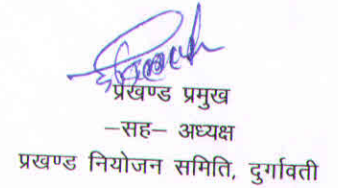 प्रखण्ड प्रमुख
–सह– अध्यक्ष
प्रखण्ड नियोजन समिति, दुर्गावती